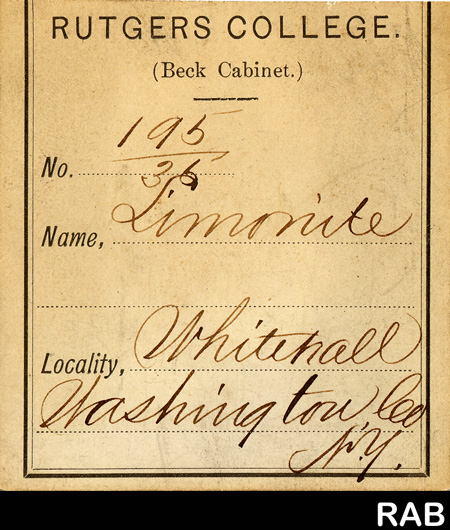 RUTGERS COLLEGE.
(Beck Cabinet.)
195
No. 36
Name, Limonite
Locality, Whitehall
Washington Co
N.Y.
RAB